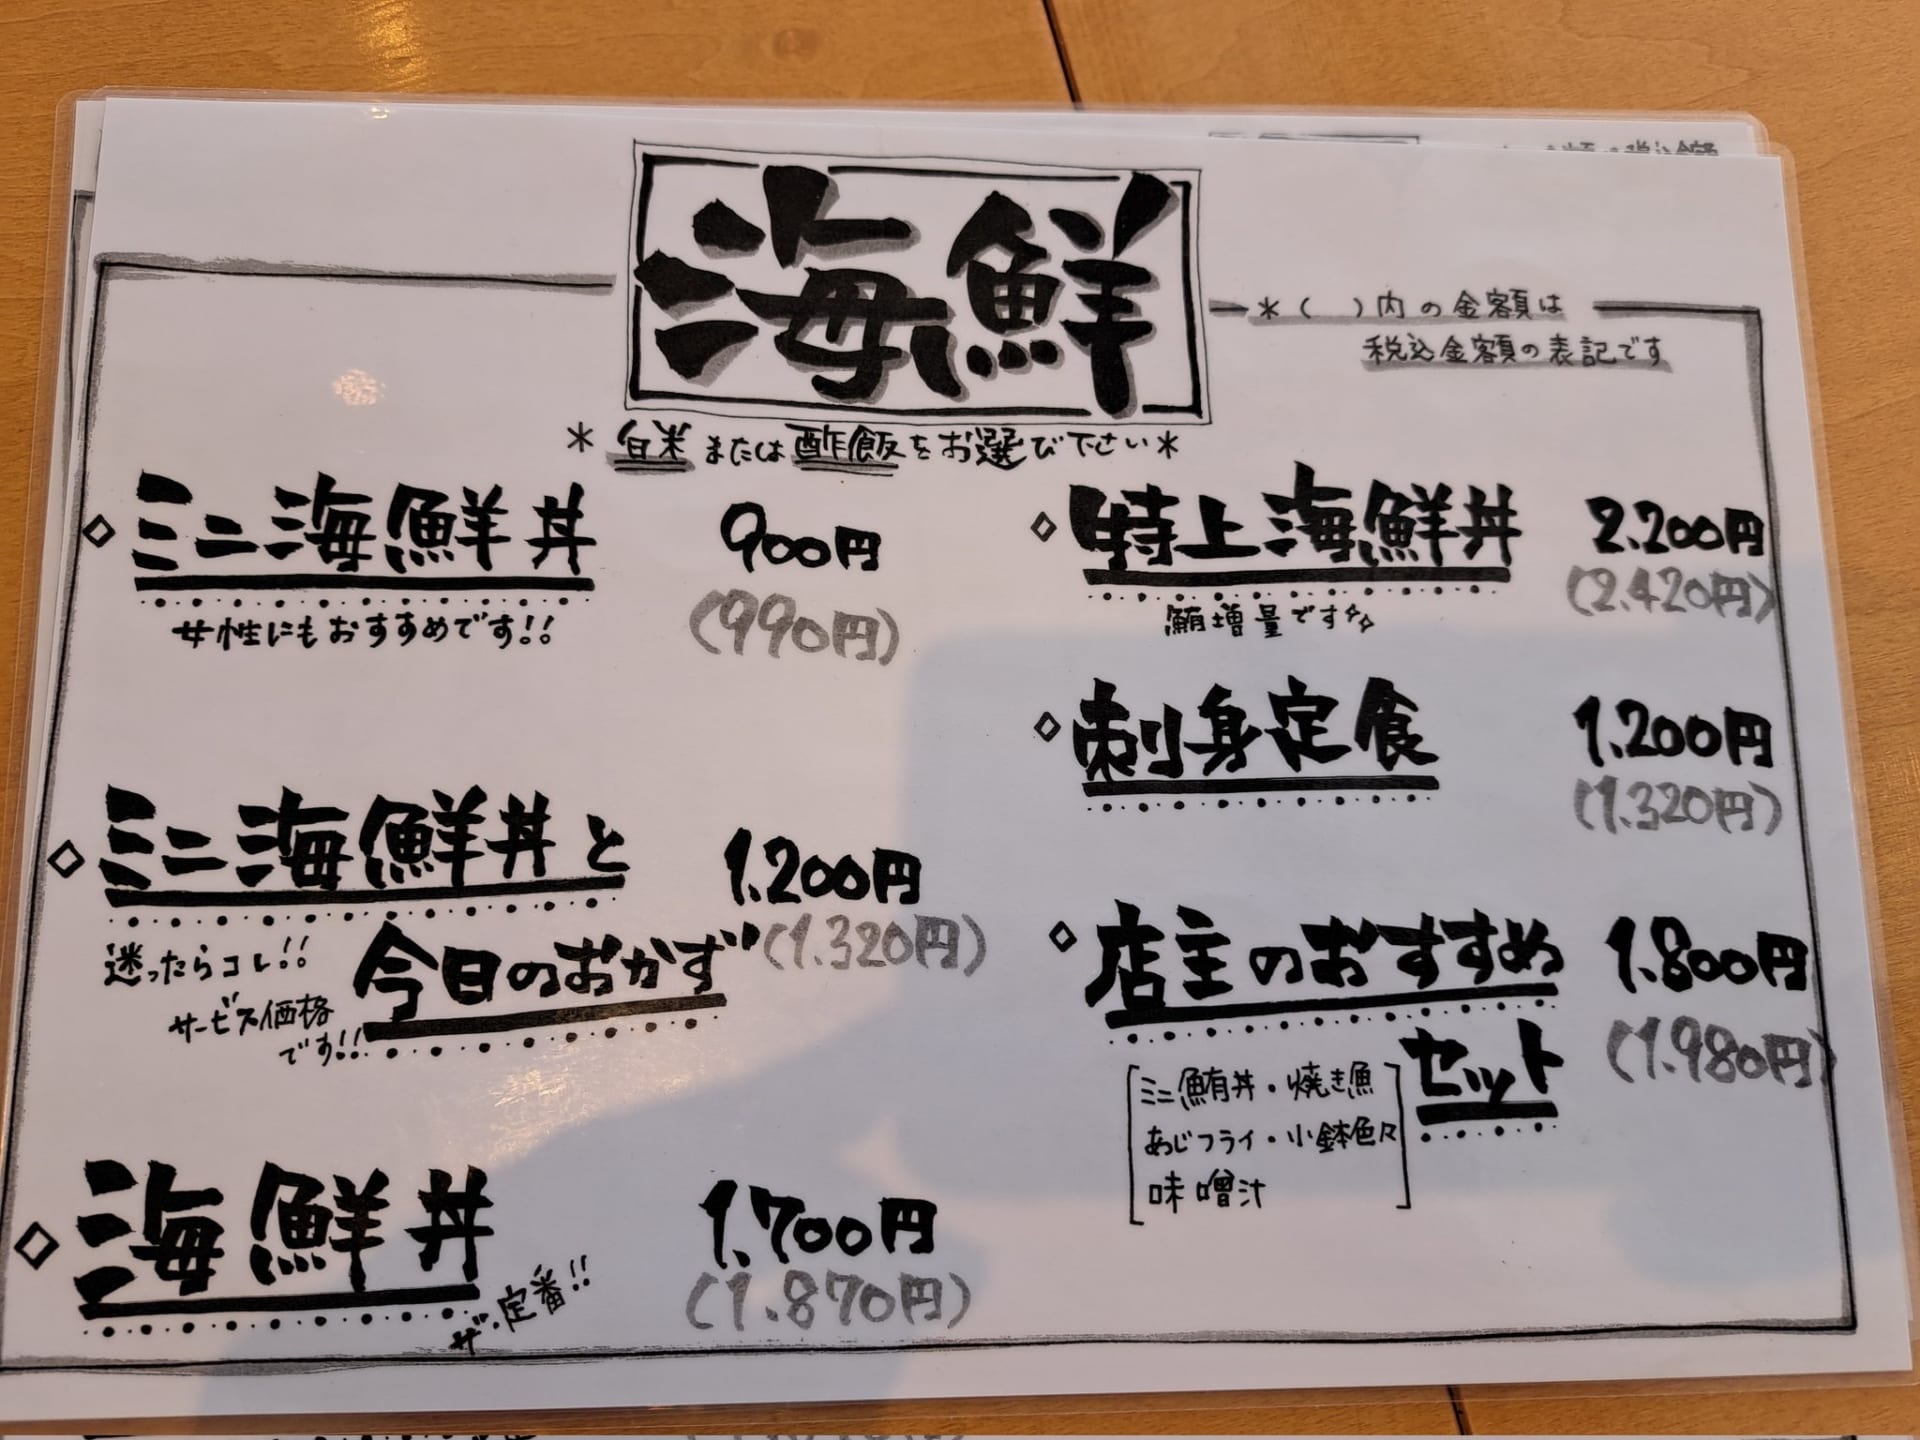 海鮮
*( )内の金額は
税込金額の表記です
*白米または酢飯をお選び下さい*
◇ミニ海鮮丼 900円
(990円)
女性にもおすすめです!!
◇ミニ海鮮丼と 1.200円
今日のおかず (1.320円)
迷ったらコレ!!
サービス価格
です!!
◇海鮮丼 1.700円
ザ・定番!! (1.870円)
◇特上海鮮丼 2.200円
(2.420円)
鮪増量です
◇刺身定食 1.200円
(1.320円)
◇店主のおすすめ 1.800円
セット (1.980円)
ミニ鮪丼・焼き魚
あじフライ・小鉢色々
味噌汁